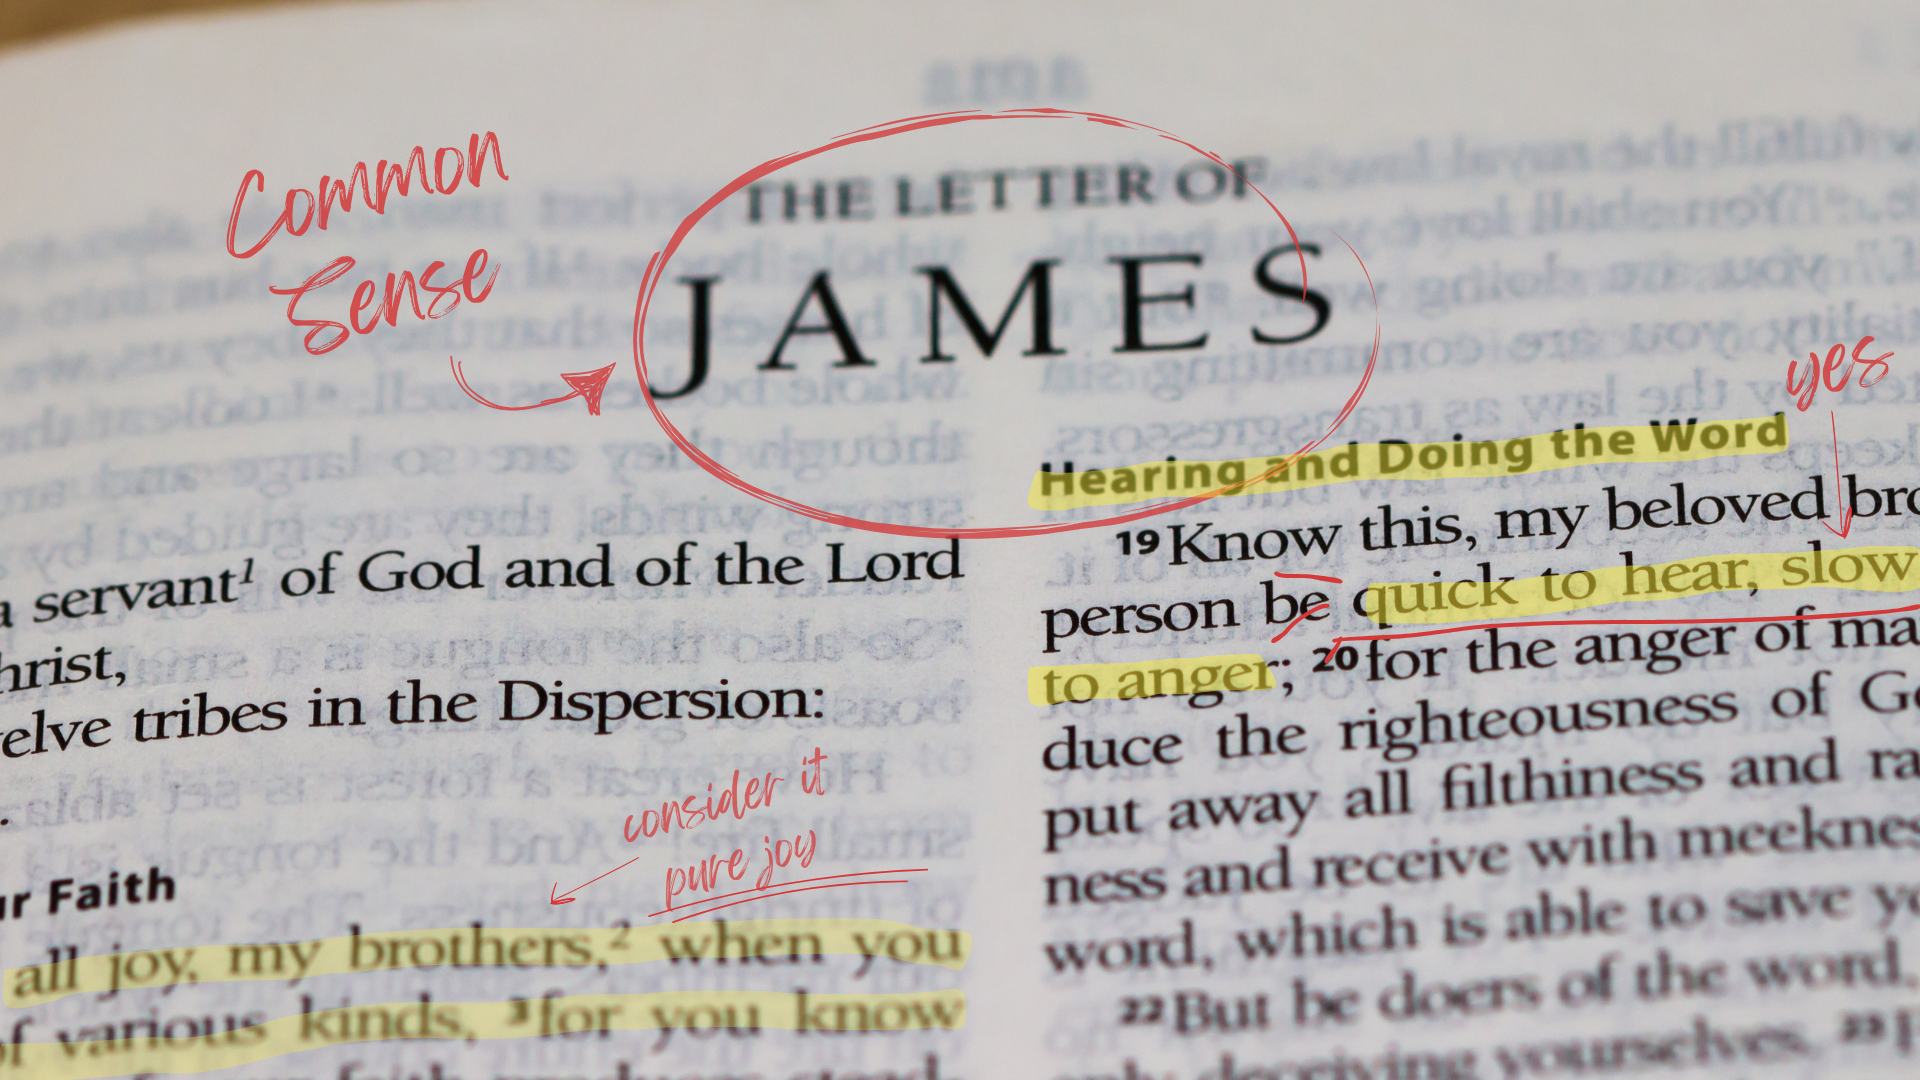 Common
Sense
THE LETTER OF
JAMES
a servant¹ of God and of the Lord
hrist,
elve tribes in the Dispersion:
.
ur Faith
consider it
pure joy
all joy, my brothers,² when you
of various kinds, ³for you know
yes
Hearing and Doing the Word
¹⁹Know this, my beloved bro
person be quick to hear, slow
to anger; ²⁰for the anger of ma
duce the righteousness of Go
put away all filthiness and ra
ness and receive with meeknes
word, which is able to save yo
²²But be doers of the word,
only deceiving yourselves. ²³